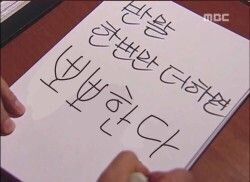 MBC
반말
한번만 더하면
한다